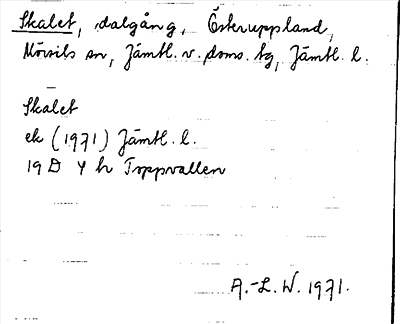 Skalet, dalgång, Österuppland,
Mörsils sn, Jämtl. v. doms. tg, Jämtl. l.
Skalet
ek (1971) Jämtl. l.
19 D 4 h Toppvallen
A.-L. W. 1971.